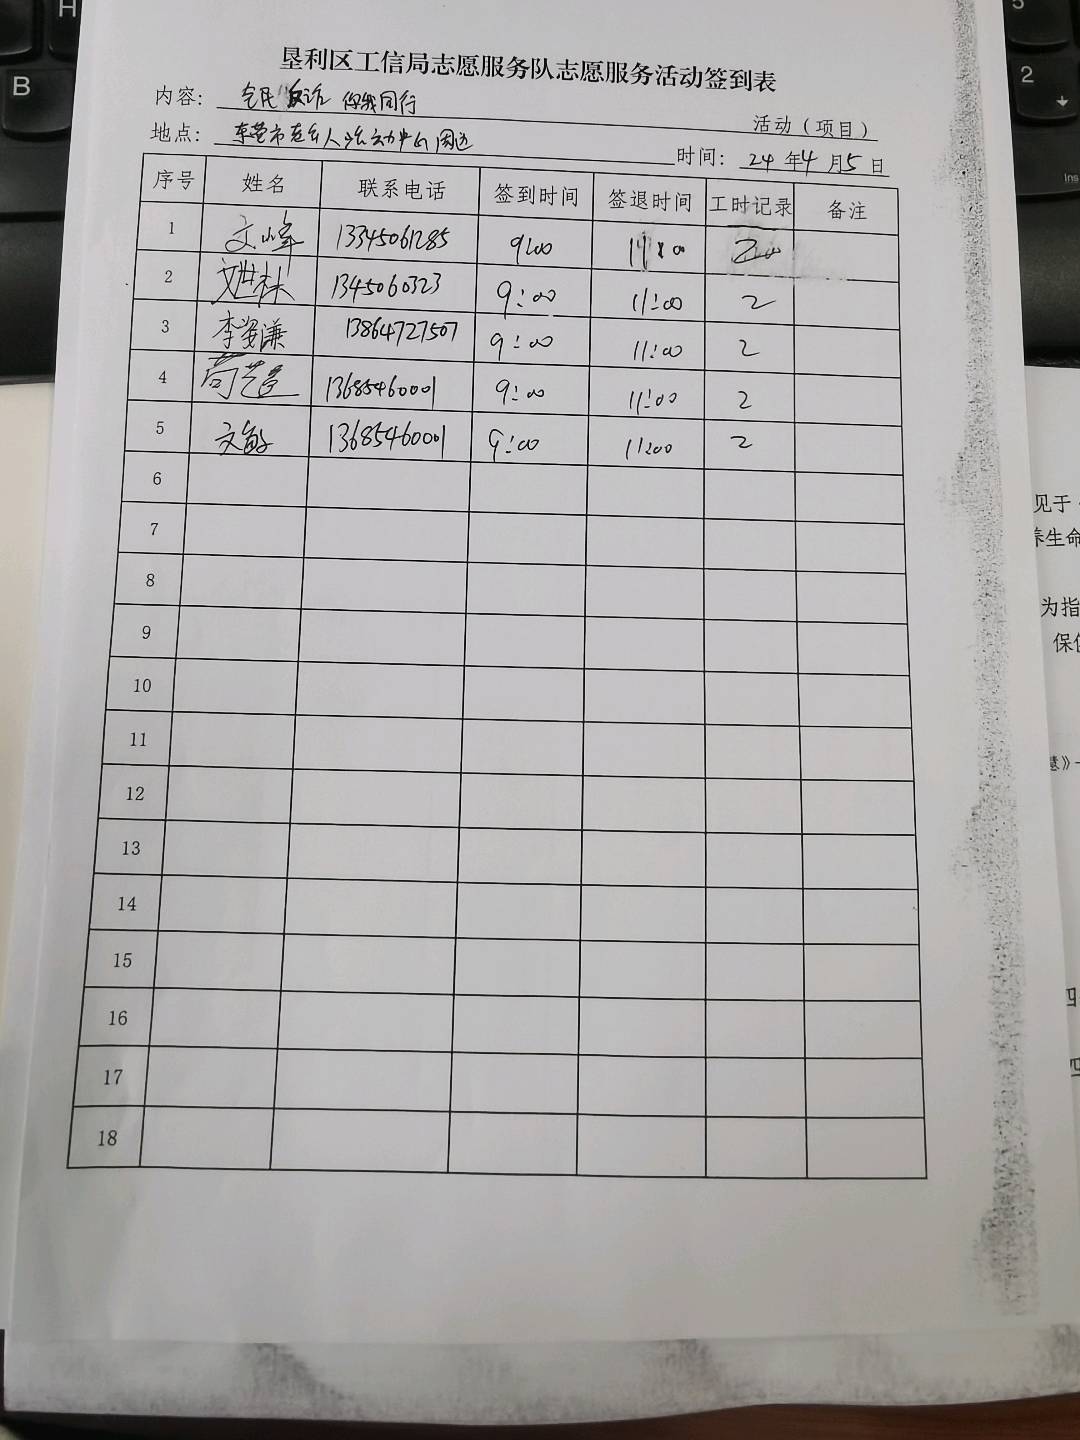 H
B
5
2
Ins
垦利区工信局志愿服务队志愿服务活动签到表
内容: 全民反诈 你我同行 活动（项目）
地点: 东营市 活动中心周边 时间: 24 年4 月5 日
序号 姓名 联系电话 签到时间 签退时间 工时记录 备注
1 文峰 13345061285 9:00 11:00 2
2 1345060323 9:00 11:00 2
3 李姿谦 13864727507 9:00 11:00 2
4 13685460001 9:00 11:00 2
5 文敏 13685460001 9:00 11:00 2
6
7
8
9
10
11
12
13
14
15
16
17
18
见于
养生命
为指
保
慧》
四
四